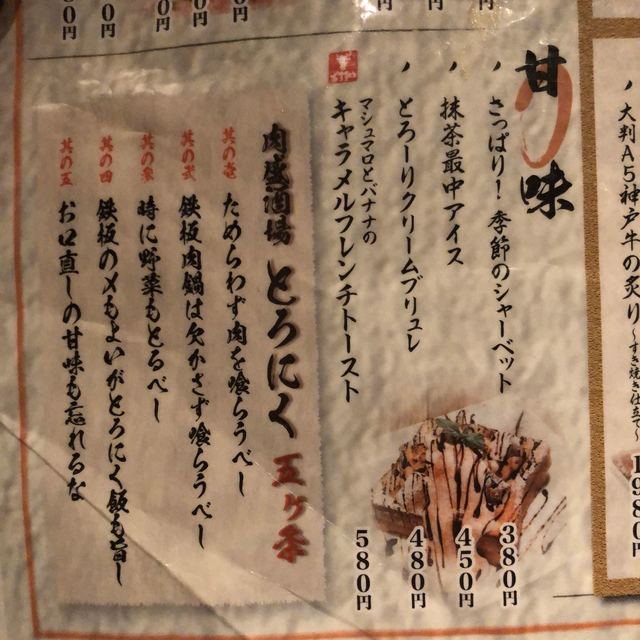 大判A5神戸牛の炙り
1080円
甘味
さっぱり！季節のシャーベット
380円
抹茶最中アイス
450円
とろーりクリームブリュレ
480円
マシュマロとバナナの
キャラメルフレンチトースト
580円
肉盛酒場 とろにく 五ケ条
其の壱 ためらわず肉を喰らうべし
其の弐 鉄板肉鍋は欠かさず喰らうべし
其の参 時に野菜もとるべし
其の四 鉄板の〆もよいがとろにく飯も旨し
其の五 お口直しの甘味も忘れるな